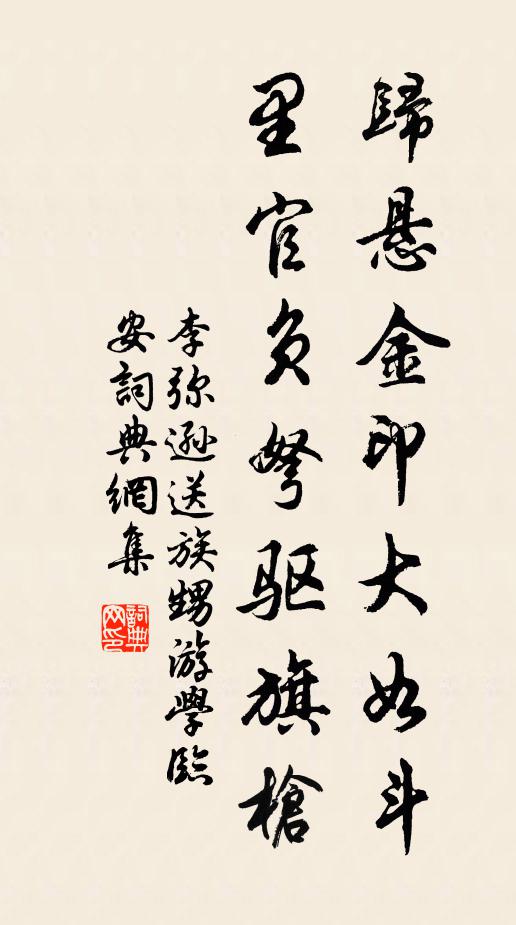 歸悬金印大如斗
里官負弩驱旗槍
李弥遜送族甥游學臨
安詞典網集
詞典网印